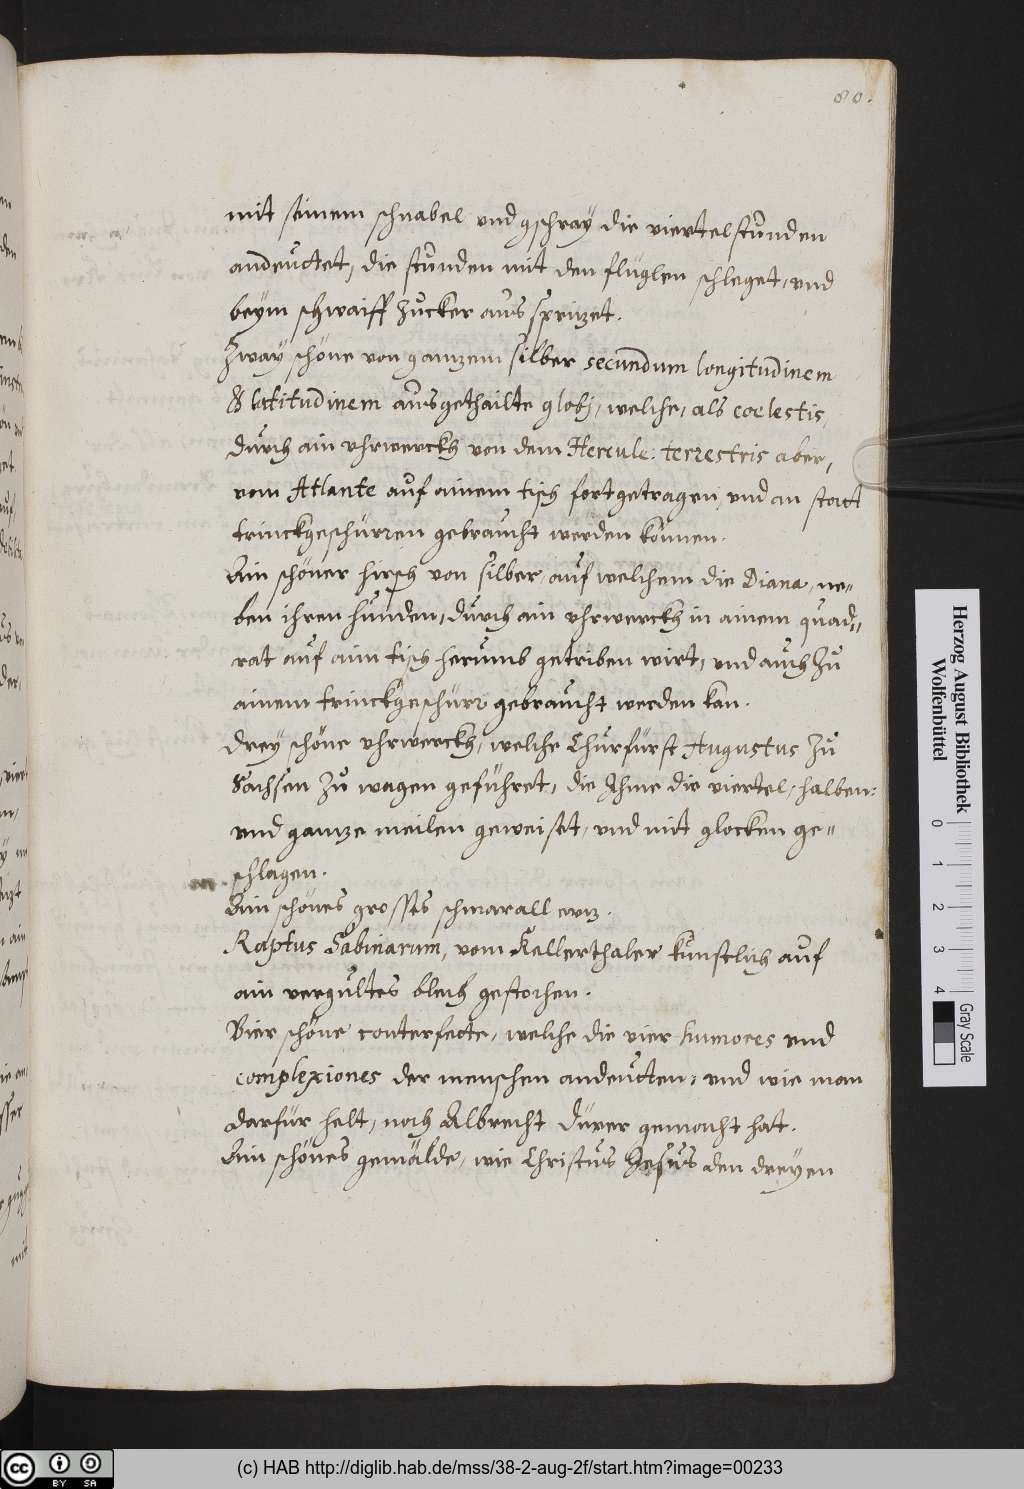 80.
mit seinem schnabel vnd gschray die viertelstunden
andeuttet, die stunden mit den fluglen schleget, vnd
beym schwaiff zucker aus sprizet.
Zway schöne von ganzem silber secundum longitudinem
& latitudinem ausgethailte globj, welche, als coelestis,
durch ain vhrwerckh von dem Hercule: terrestris aber,
vom Atlante auf ainem tisch fortgetragen, vnd an statt
trinckhgeschürren gebraucht werden können.
Ain schöner hirsch von silber, auf welchem die Diana, ne=
ben ihren hunden, durch ain vhrwerckh in ainem quad=
rat auf aim tisch herumb getriben wirt, vnd auch zu
ainem trinckhgeschürr gebraucht werden kan.
Drey schöne vhrwerckh, welche Churfürst Augustus zu
Sachsen zu wagen geführet, die Ihme die viertel, halben:
vnd ganze meilen geweiset, vnd mit glocken ge=
schlagen.
Ain schönes grosses schmarall
Raptus Sabinarum, vom Kellerthaler kunstlich auf
ain vergultes blech gestochen.
Vier schöne conterfecte, welche die vier humores vnd
complexiones der menschen andeutten, vnd wie man
darfür helt, noch Albrecht Dürer gemacht hat.
Ain schönes gemälde, wie Christus Jesus den dreyen
Herzog August Bibliothek
Wolfenbüttel
0 1 2 3 4
Gray Scale
CC BY SA
(c) HAB http://diglib.hab.de/mss/38-2-aug-2f/start.htm?image=00233